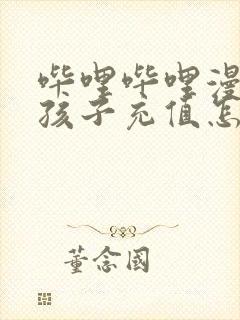 哔哩哔哩漫
孩子充值怎
董念国